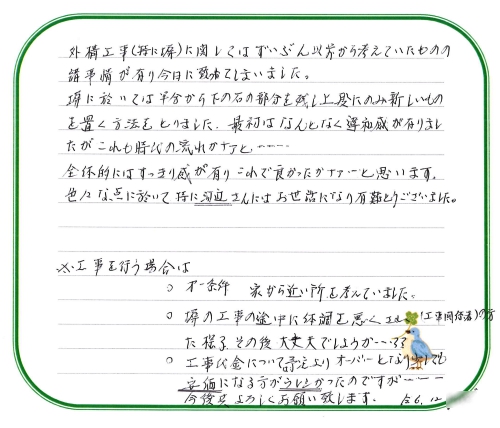 外構工事(特に塀)に関してはずいぶん以前から考えていたものの
諸事情が有り今日に致ってしまいました。
塀に於いては半分から下の石の部分を残し上段にのみ新しいもの
を置く方法をとりました。最初はなんとなく違和感が有りまし
たがこれも時代の流れかナァと----
全体的にはすっきり感が有りこれで良かったかナァーと思います。
色々な点に於いて特に河辺さんにはお世話になり有難とうございました。
※工事を行う場合は
○ 才一条件 家から近い所を考えていました。
○ 塀の工事の途中に体調を悪く (工事関係者)の方
た様子その後大丈夫でしょうか---??
○ 工事代金について考えよりオーバーとなり少しでも
安価になる方がうれしかったのですが----
今後共よろしくお願い致します。 R6.12.